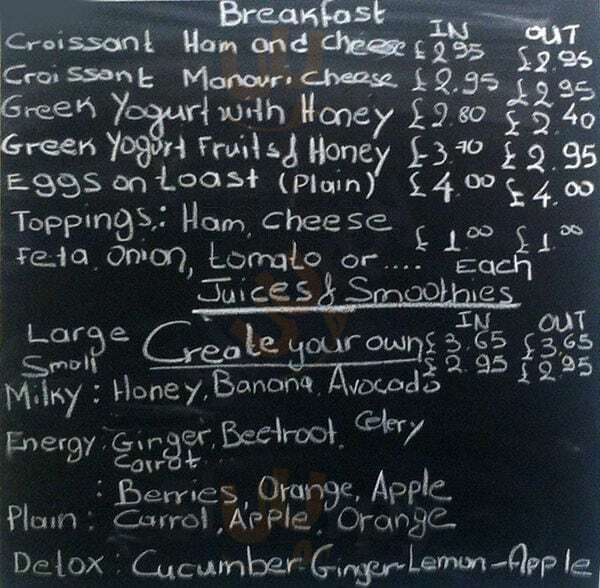 Breakfast
IN OUT
Croissant Ham and cheese £2.95 £2.95
Croissant Manouri cheese £2.95 £2.95
Greek Yogurt with Honey £2.80 £2.40
Greek Yogurt Fruits & Honey £3.70 £2.95
Eggs on toast (Plain) £4.00 £4.00
Toppings: Ham, cheese £1.00 £1.00
Feta, Onion, tomato or .... Each
Juices & Smoothies
IN OUT
Large Create your own £3.65 £3.65
Small £2.95 £2.95
Milky: Honey, Banana, Avocado
Energy: Ginger, Beetroot, Celery
Carrot
: Berries, Orange, Apple
Plain: Carrot, Apple, Orange
Detox: Cucumber-Ginger-Lemon-Apple